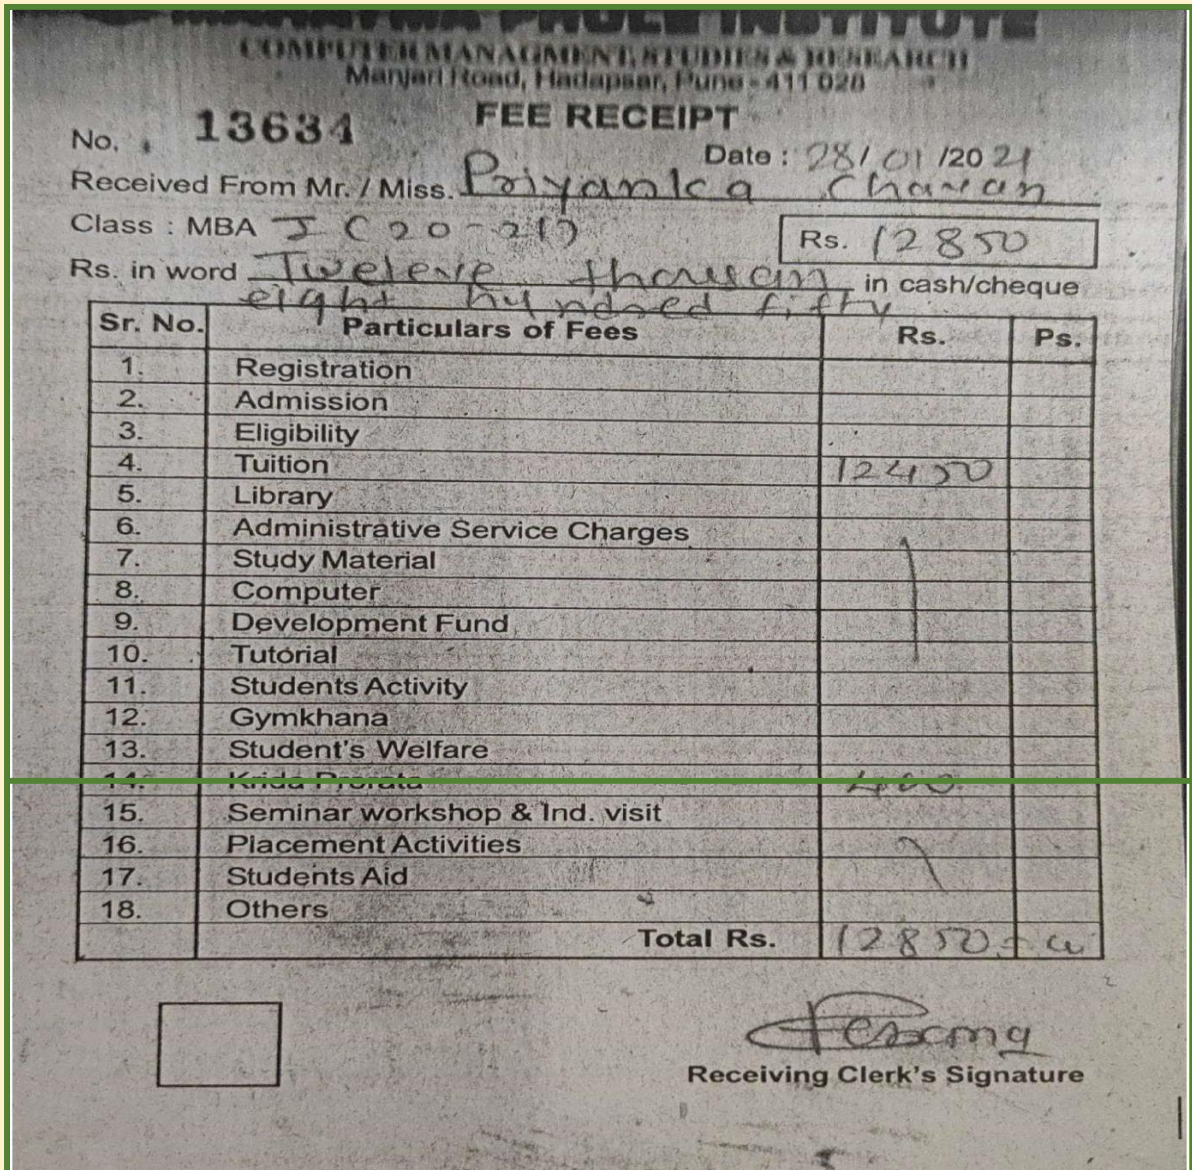 INSTITUTE
COMPUTER MANAGMENT, STUDIES & RESEARCH
Manjari Road, Hadapsar, Pune - 411 028
FEE RECEIPT
No. 13634
Date : 28/01/2021
Received From Mr. / Miss. Priyanka Chavan
Class : MBA I (20-21)
Rs. 12850
Rs. in word Tweleve thousan in cash/cheque
eight hundred fifty
Sr. No. Particulars of Fees Rs. Ps.
1. Registration
2. Admission
3. Eligibility
4. Tuition 12450
5. Library
6. Administrative Service Charges
7. Study Material
8. Computer
9. Development Fund
10. Tutorial
11. Students Activity
12. Gymkhana
13. Student's Welfare
14. Krida Prorata 400
15. Seminar workshop & Ind. visit
16. Placement Activities
17. Students Aid
18. Others
Total Rs. 12850
Receiving Clerk's Signature